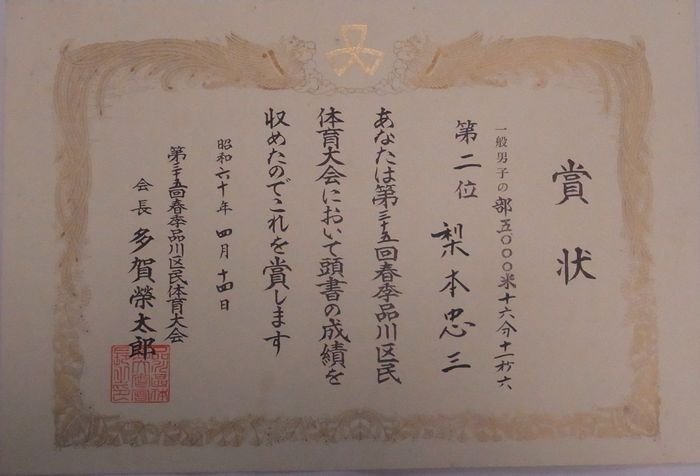 賞状
一般男子の部五〇〇〇米十六分十一秒六
第二位 梨本忠三
あなたは第三十五回春季品川区民
体育大会において頭書の成績を
収めたのでこれを賞します
昭和六十年四月十四日
第三十五回春季品川区民体育大会
会長 多賀榮太郎